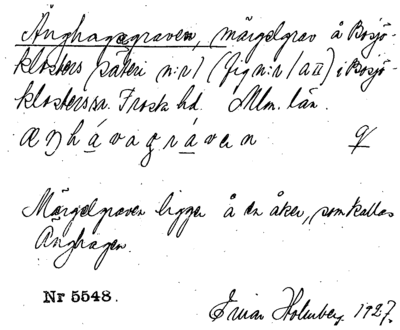 Änghagagraven, märgelgrav å Bosjö-
klosters säteri n:r 1 (fig n:r 1 a II) i Bosjö-
klosters sn. Frosta hd. Mlm. län.
æŋhávagráven
Märgelgraven ligger å en åker, som kallas
Änghagen.
Nr 5548.
Ewan Holmberg. 1927.